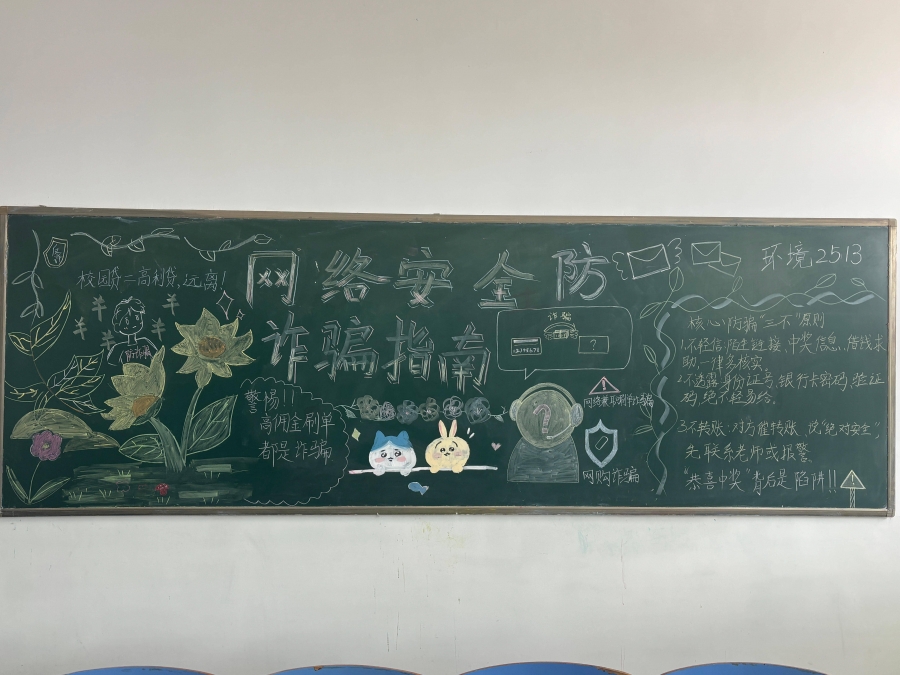 校园贷=高利贷,远离!
防诈骗
网络安全防
诈骗指南
警惕!!
高佣金刷单
都是诈骗
诈骗
?
?
网络兼职刷单诈骗
网购诈骗
环境2513
核心防骗“三不”原则
1.不轻信:陌生链接、中奖信息、借钱求
助,一律多核实。
2.不透露:身份证号、银行卡密码、验证
码,绝不轻易给。
3.不转账:对方催转账、说“绝对安全”,
先联系老师或报警
“恭喜中奖”背后是陷阱!!